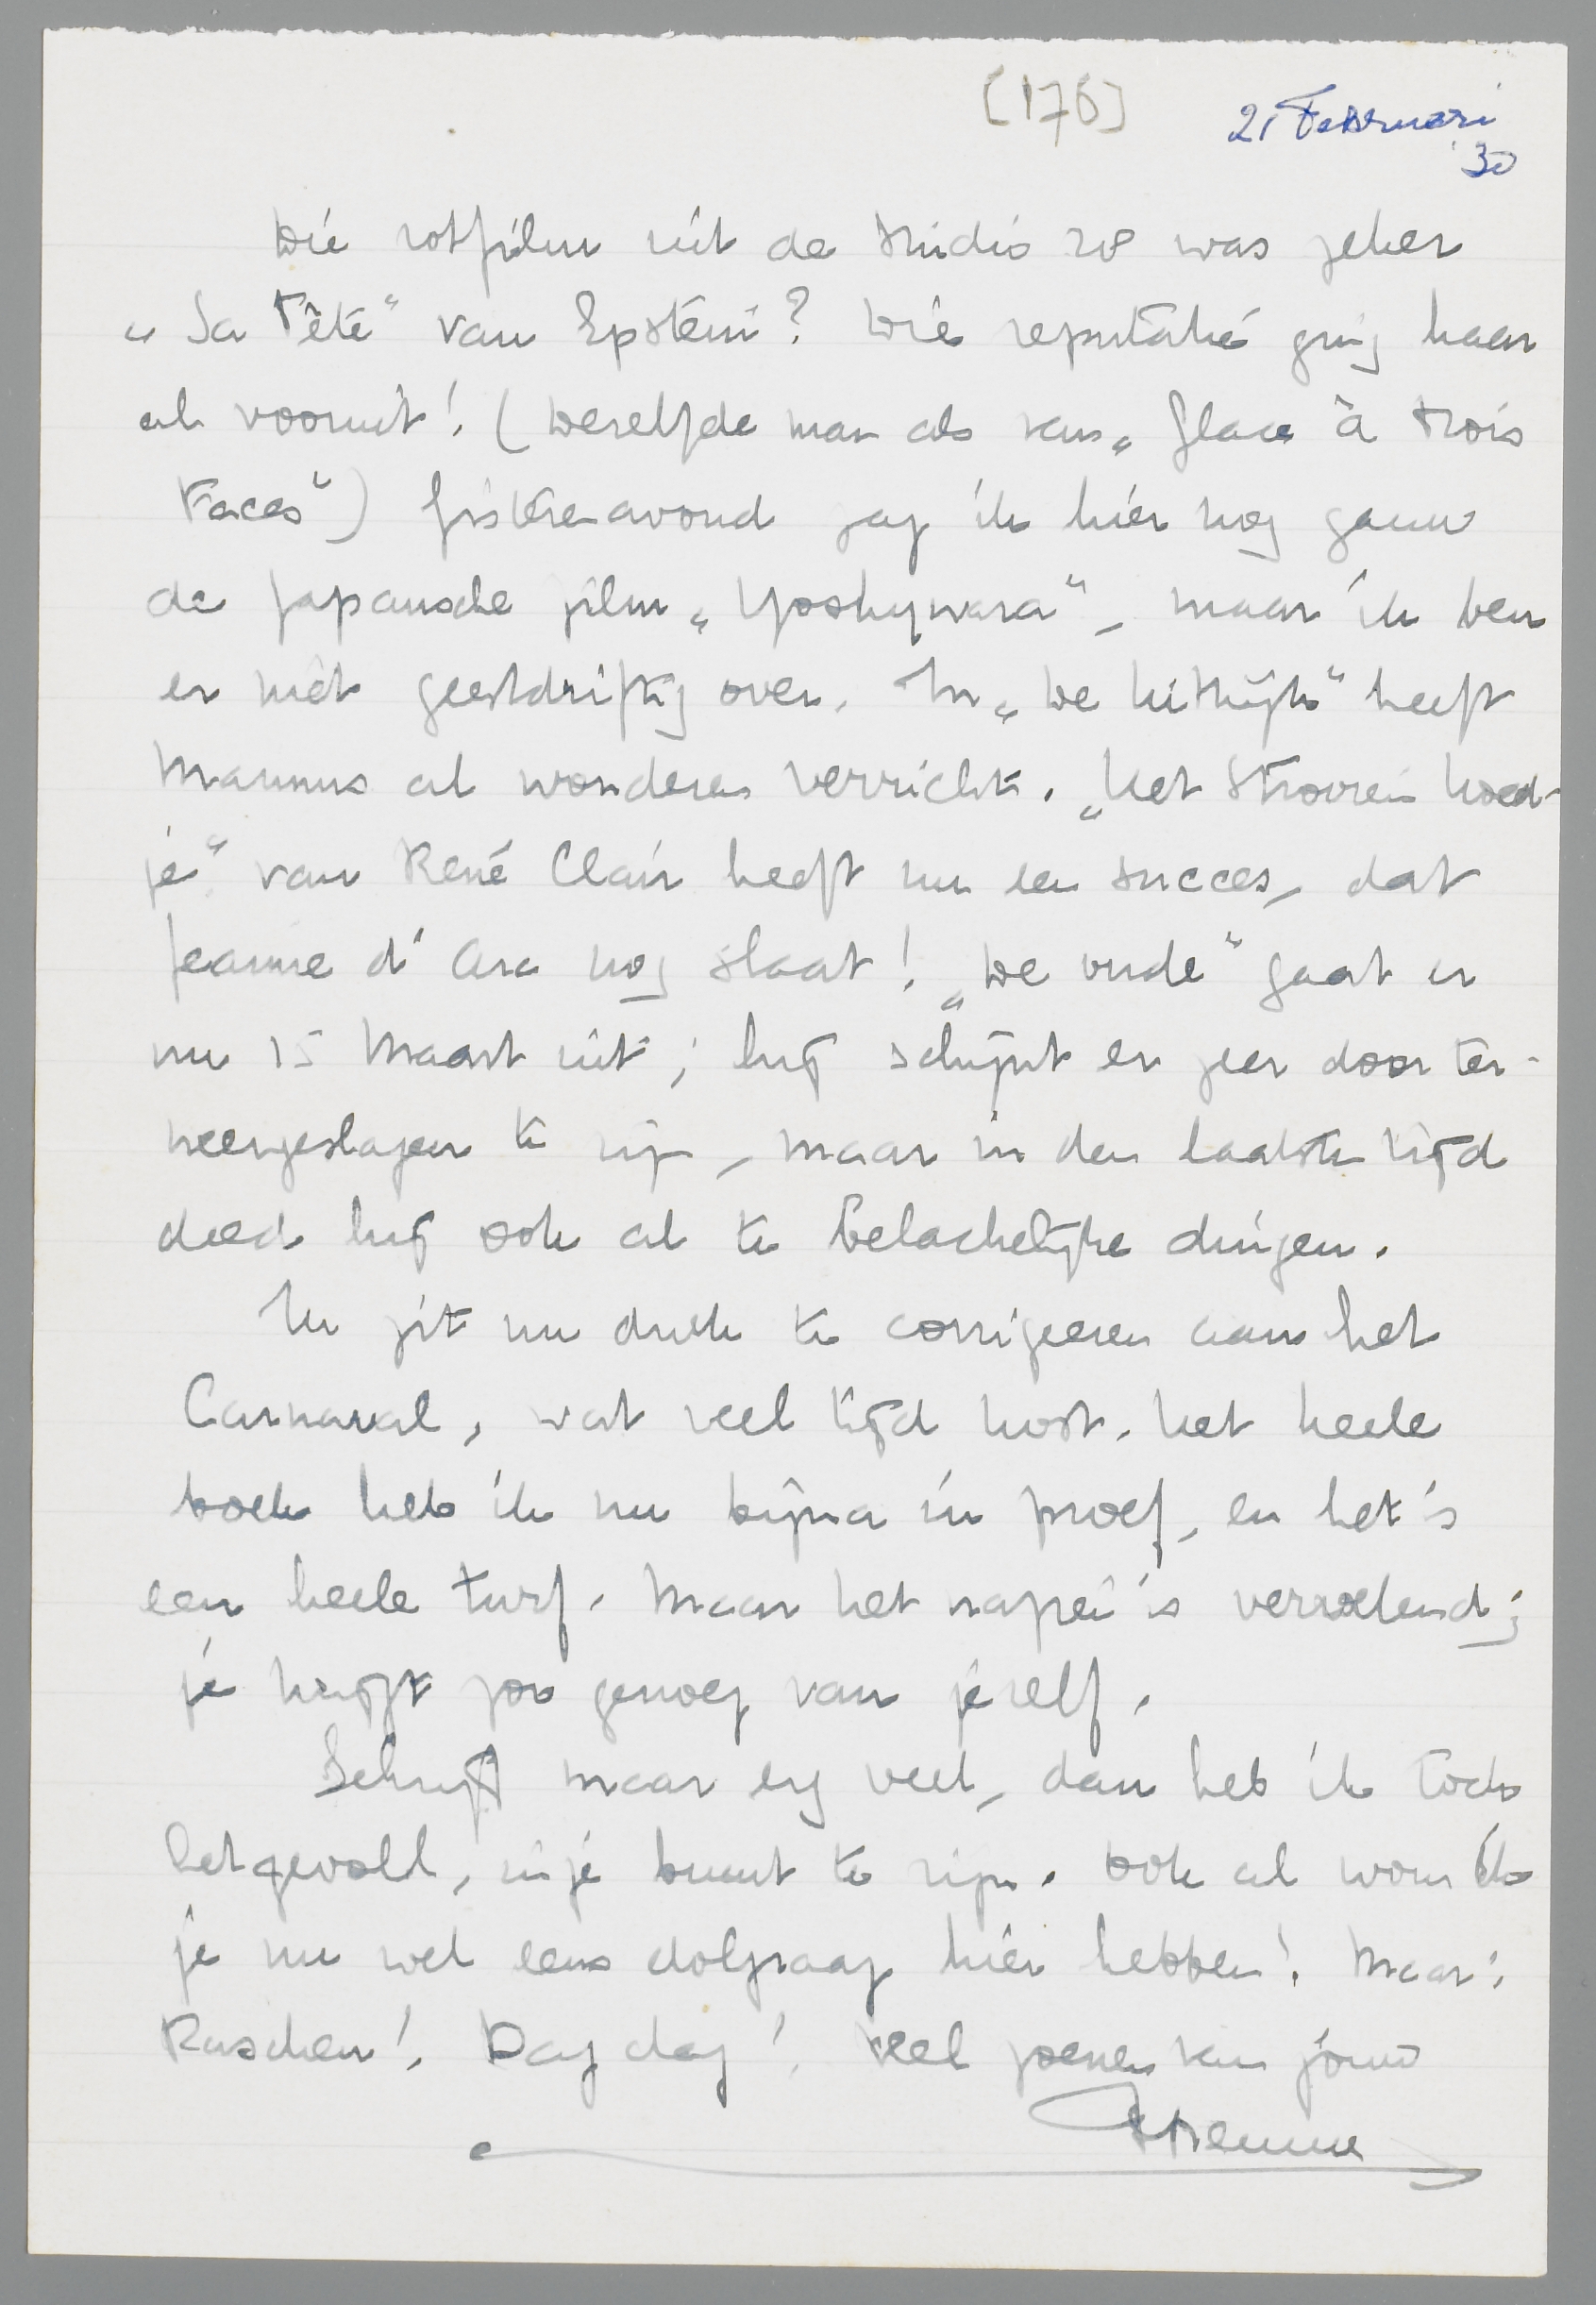 [176] 21 Februari
'30
Die rotfilm uit de Studio 28 was zeker
„Sa Tête" van Epstein? Die reputatie ging haar
al vooruit! (Dezelfde man als van „Glace à trois
Faces") Gisterenavond zag ik hier nog gauw
de Japansche film „Yoshywara", maar ik ben
er niet geestdriftig over. In „De Uitkijk" heeft
Mannus al wonderen verricht. „Het Strooien hoed-
je" van René Clair heeft nu een succes, dat
Jeanne d'Arc nog slaat! „De oude" gaat er
nu 15 Maart uit; hij schijnt er zeer door ter-
neergeslagen te zijn, maar in den laatsten tijd
deed hij ook al te belachelijke dingen.
Ik zit nu druk te corrigeeren aan het
Carnaval, wat veel tijd kost. Het heele
boek heb ik nu bijna in proef, en het is
een heele turf. Maar het nazien is vervelend;
je krijgt zoo genoeg van jezelf.
Schrijf maar erg veel, dan heb ik toch
het gevoel, in je buurt te zijn. Ook al wou ik
je nu wel eens dolgraag hier hebben! Maar:
Ruschen! Dag dag! Veel zoenen van jouw
Menno